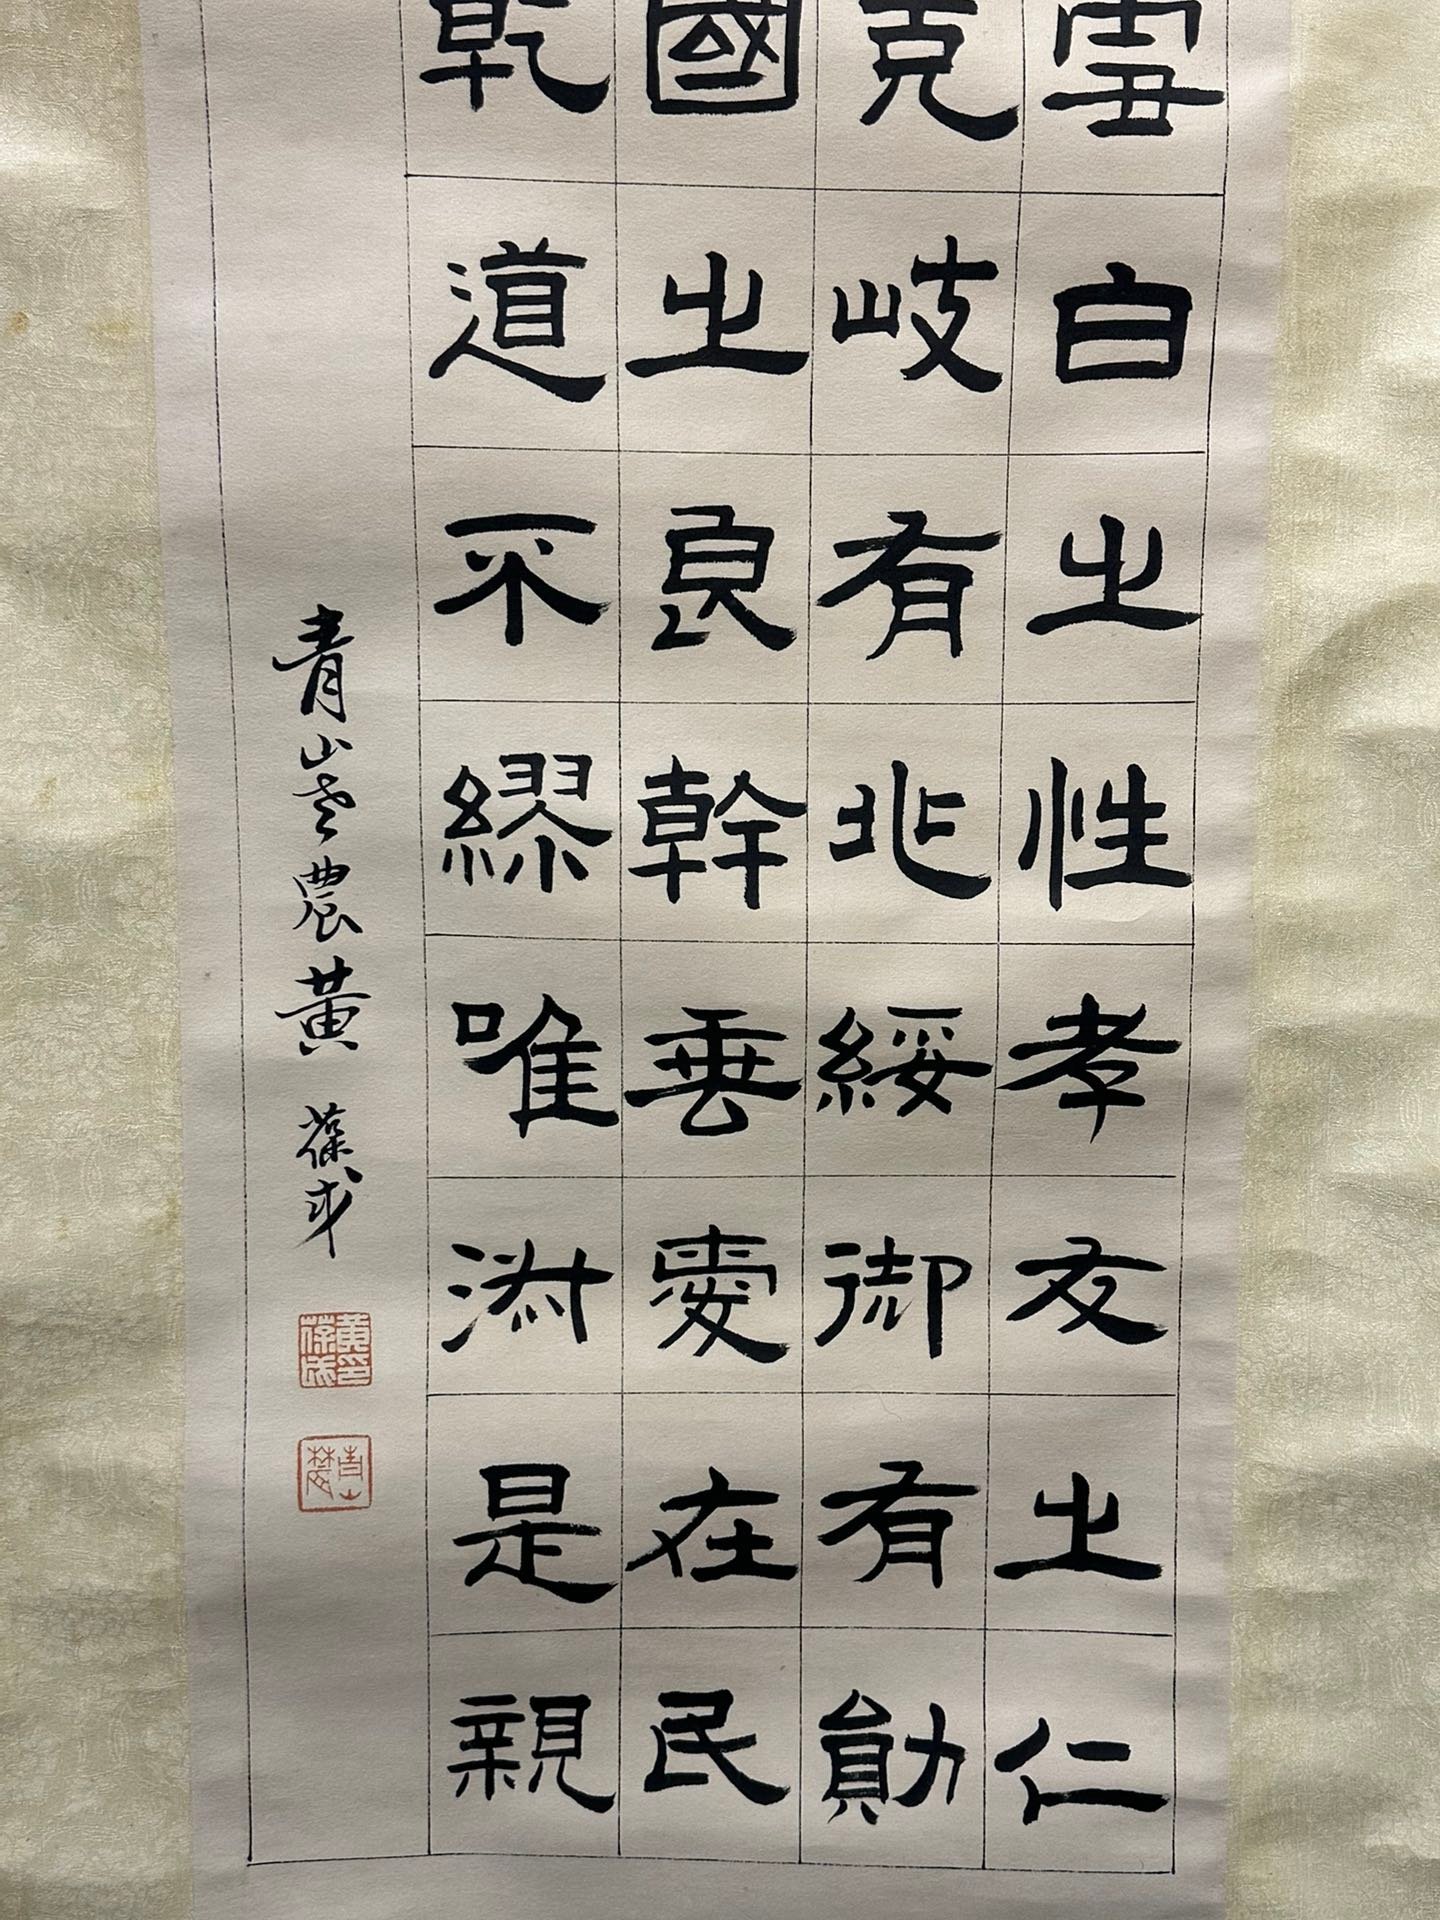 雪白之性孝友之仁
克岐有兆綏御有勛
國之良幹垂愛在民
乾道不繆唯淑是親
青山老農黃葆戉
黃印葆戉
青山農